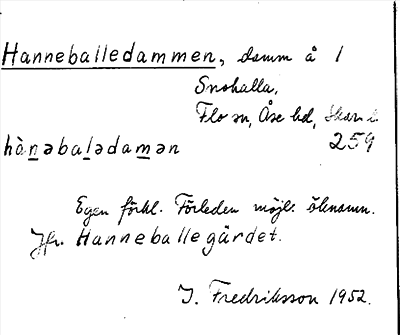 Hanneballedammen, damm å 1
Snohalla,
Flo sn, Åse hd, Skar. l.
hànəbalədamən 259
Egen förkl. Förleden möjl. öknamn.
Jfr. Hanneballegärdet.
J. Fredriksson 1952.